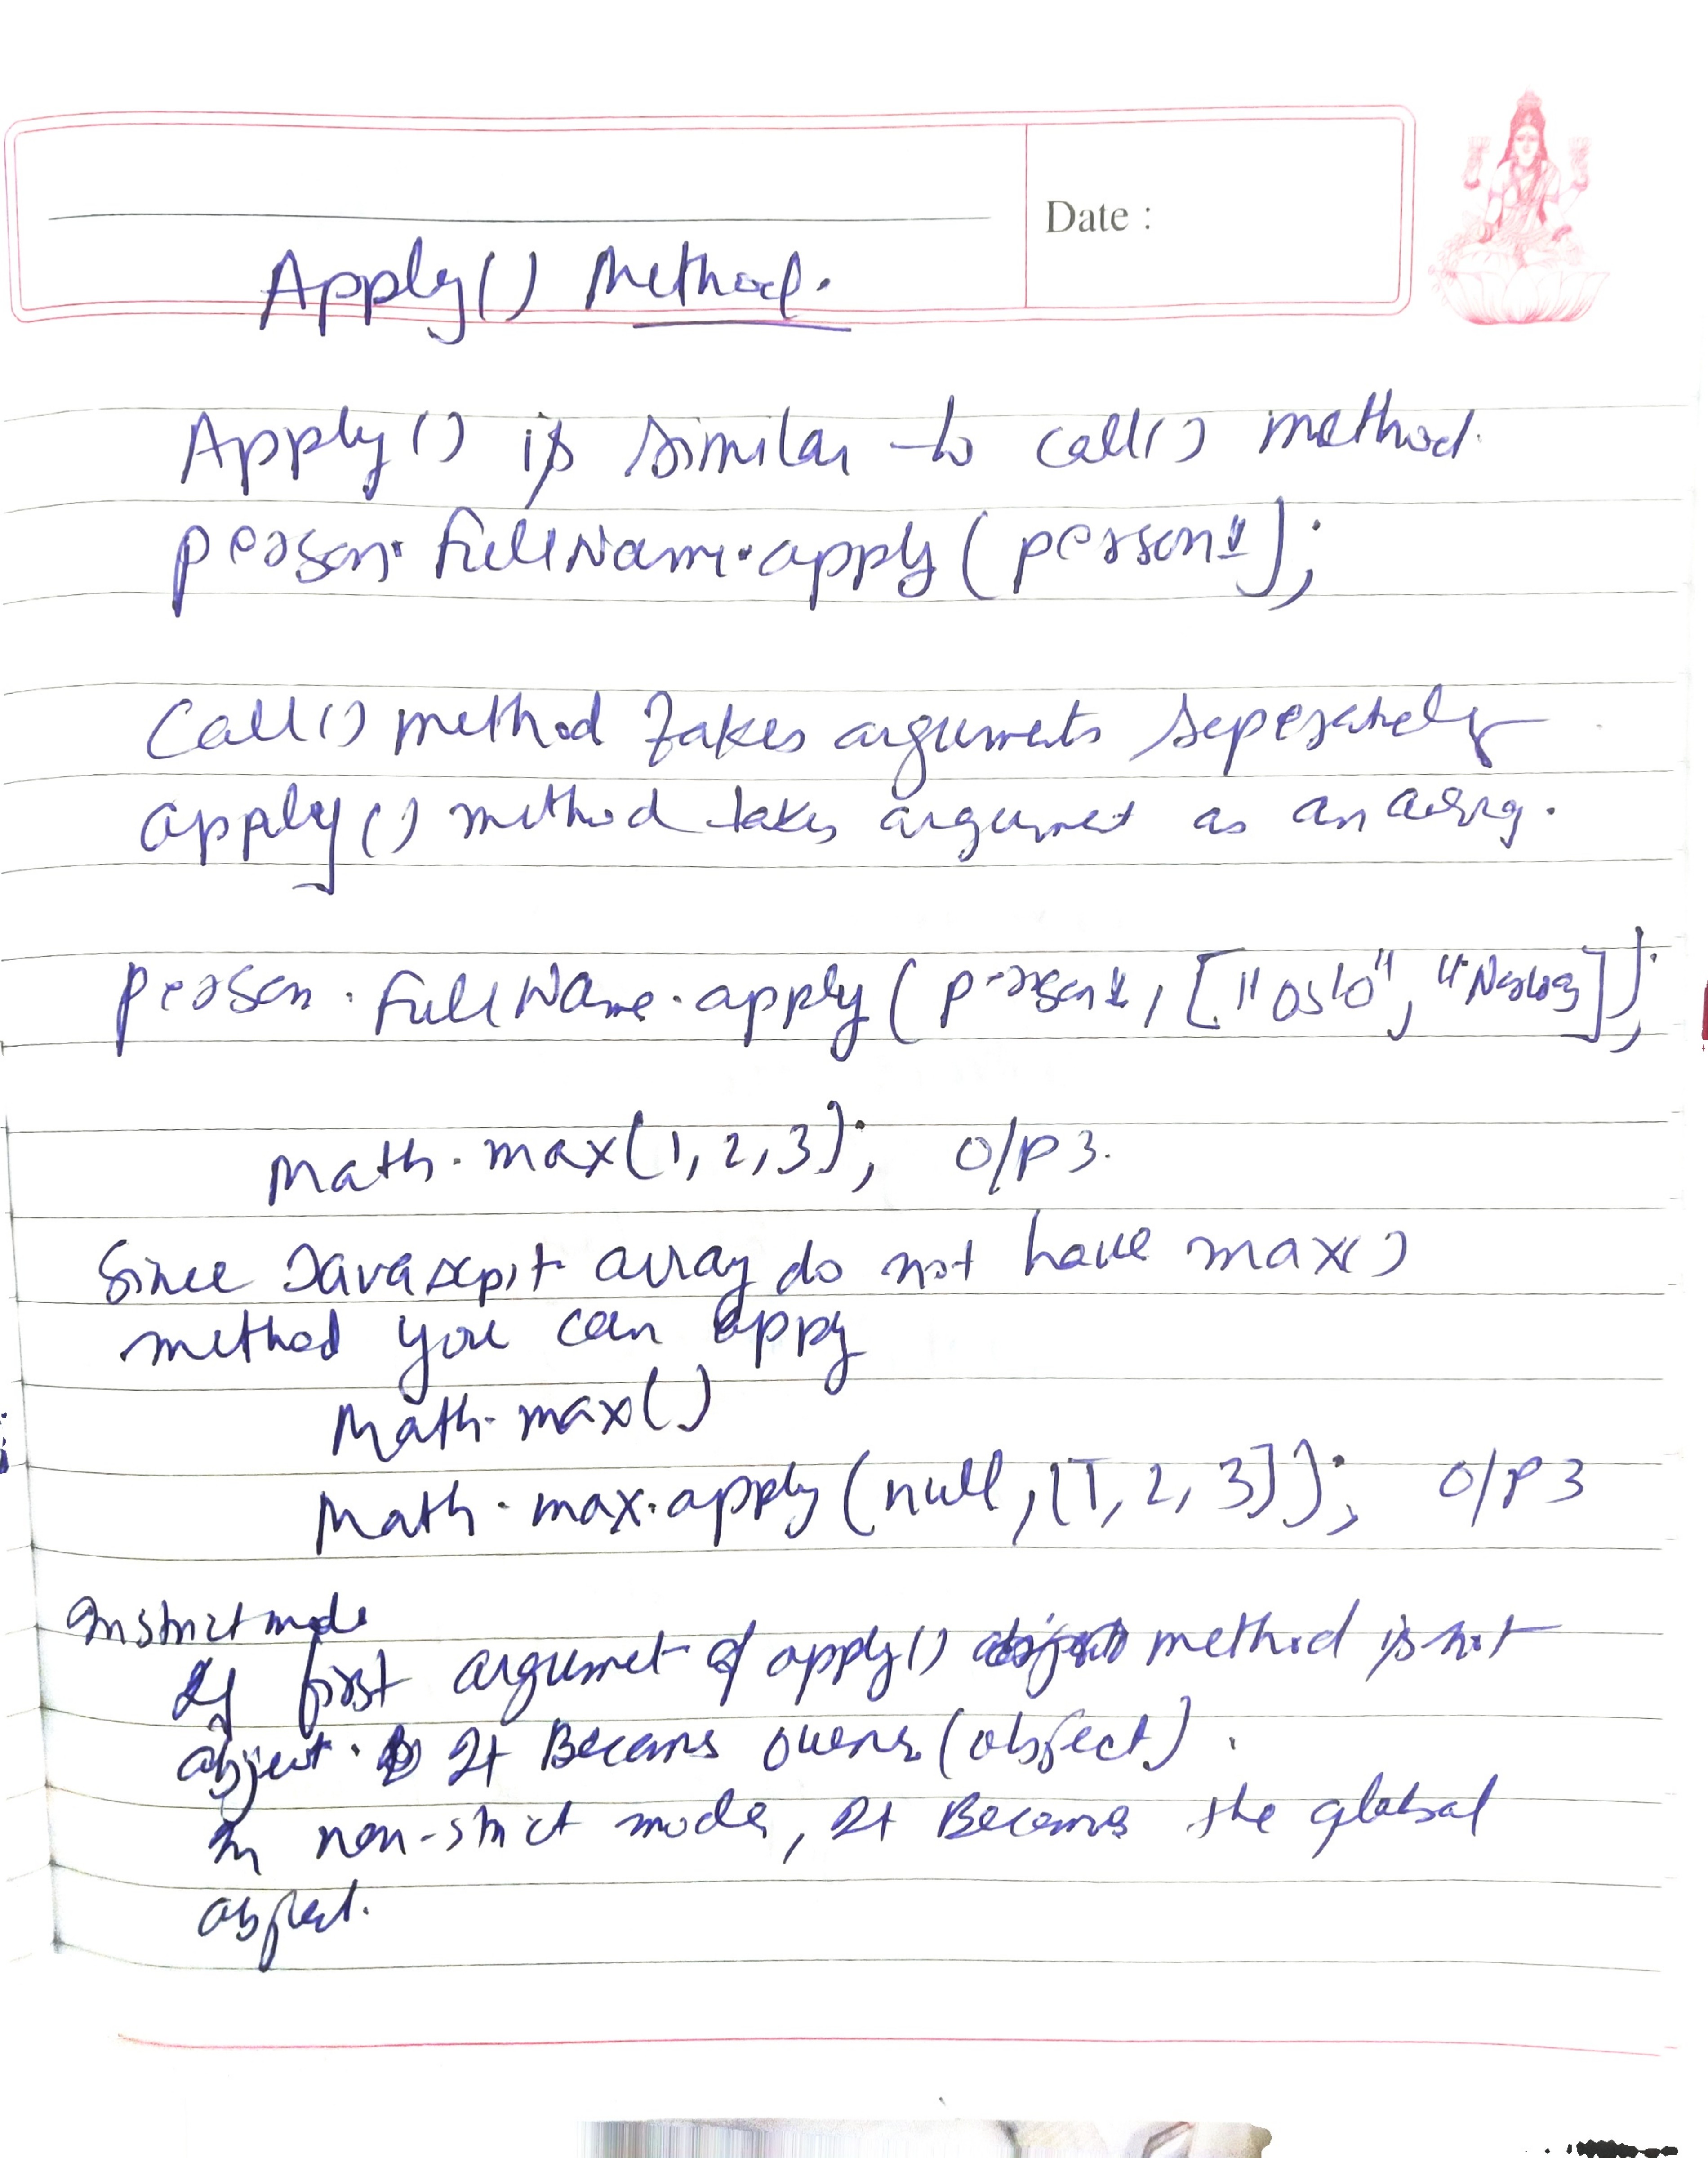 Date :
Apply() Method.
Apply() is similar to call() method.
person.fullName.apply(person1);
Call() method takes arguments seperately
apply() method takes argumet as an array.
person.fullName.apply(person1, ["Oslo", "Norway]);
Math.max(1,2,3); O/P 3.
Since Javascpit array do not have max()
method you can appy
Math.max()
Math.max.apply(null,[1,2,3]); O/P 3
In strict mode
If first argumet of apply() method is not
object. It Becoms owner (object).
In non-strict mode, It Becomes the global
object.